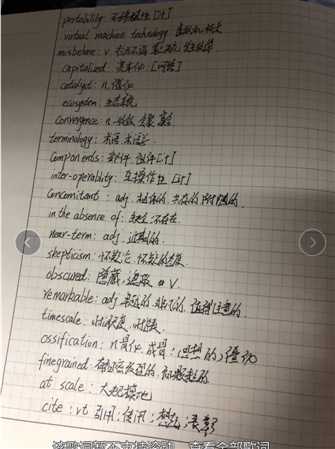 portability: 可移植性 [计]
virtual machine technology 虚拟机技术
misbehave: v.
capitalized: 资本化 [网络]
catalyst: n. 催化
ecosystem 生态系统
Convergence: n. 收敛
terminology: 术语
Components: 部件 组件 [计]
inter-operability: 互操作性 [计]
Concomitants: adj. 相伴的 共存的 附随的
in the absence of: 缺乏 不存在
near-term: adj. 近期的
skepticism: 怀疑论 怀疑的态度
obscured: 隐藏, 遮蔽 v.
remarkable: adj. 卓越的 非凡的 值得注意的
timescale: 时间表
ossification: n. 骨化 成骨; 僵化
finegrained:
at scale: 大规模地
cite: vt 引用; 传讯; 想起; 表彰
查看全部歌词